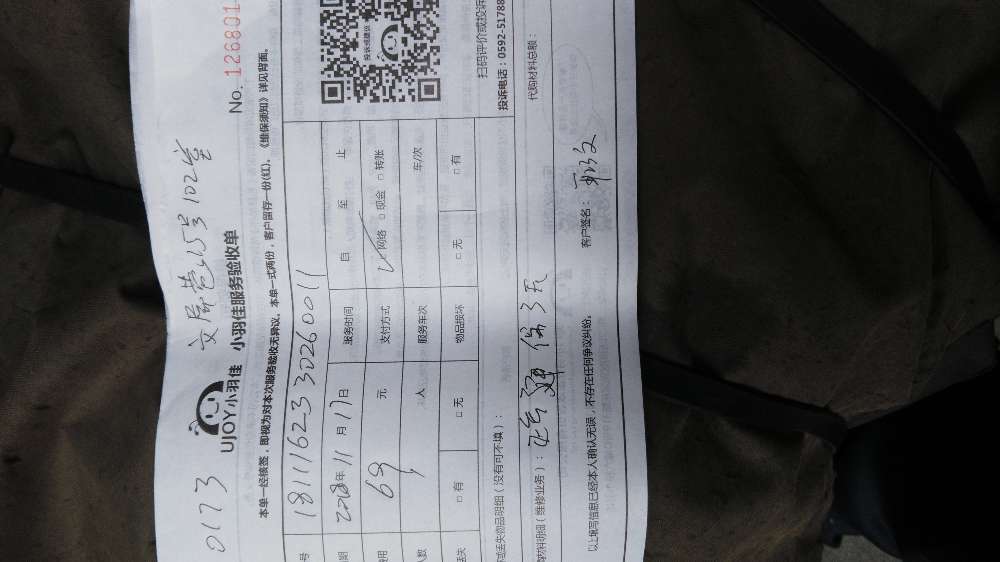 0173
15号102室
UJOY小羽佳 小羽佳服务验收单 No. 126801
本单一经核签，即视为对本次服务验收无异议。本单一式两份，客户留存一份(红)。《维保须知》详见背面。
号 181116233026001
期 2018年11月17日 服务时间 自 至 止
投诉或建议
费用 69 元 支付方式 ✓网络 □现金 □转账
人数 1 人 服务车次 车/次
丢失 □有 □无 物品损坏 □无 □有
扫码评价或投诉
投诉电话：0592-51788
或丢失物品明细（没有可不填）：
购材料明细（维修业务）： 3天 代购材料总额：
以上填写信息已经本人确认无误，不存在任何争议纠纷。 客户签名：